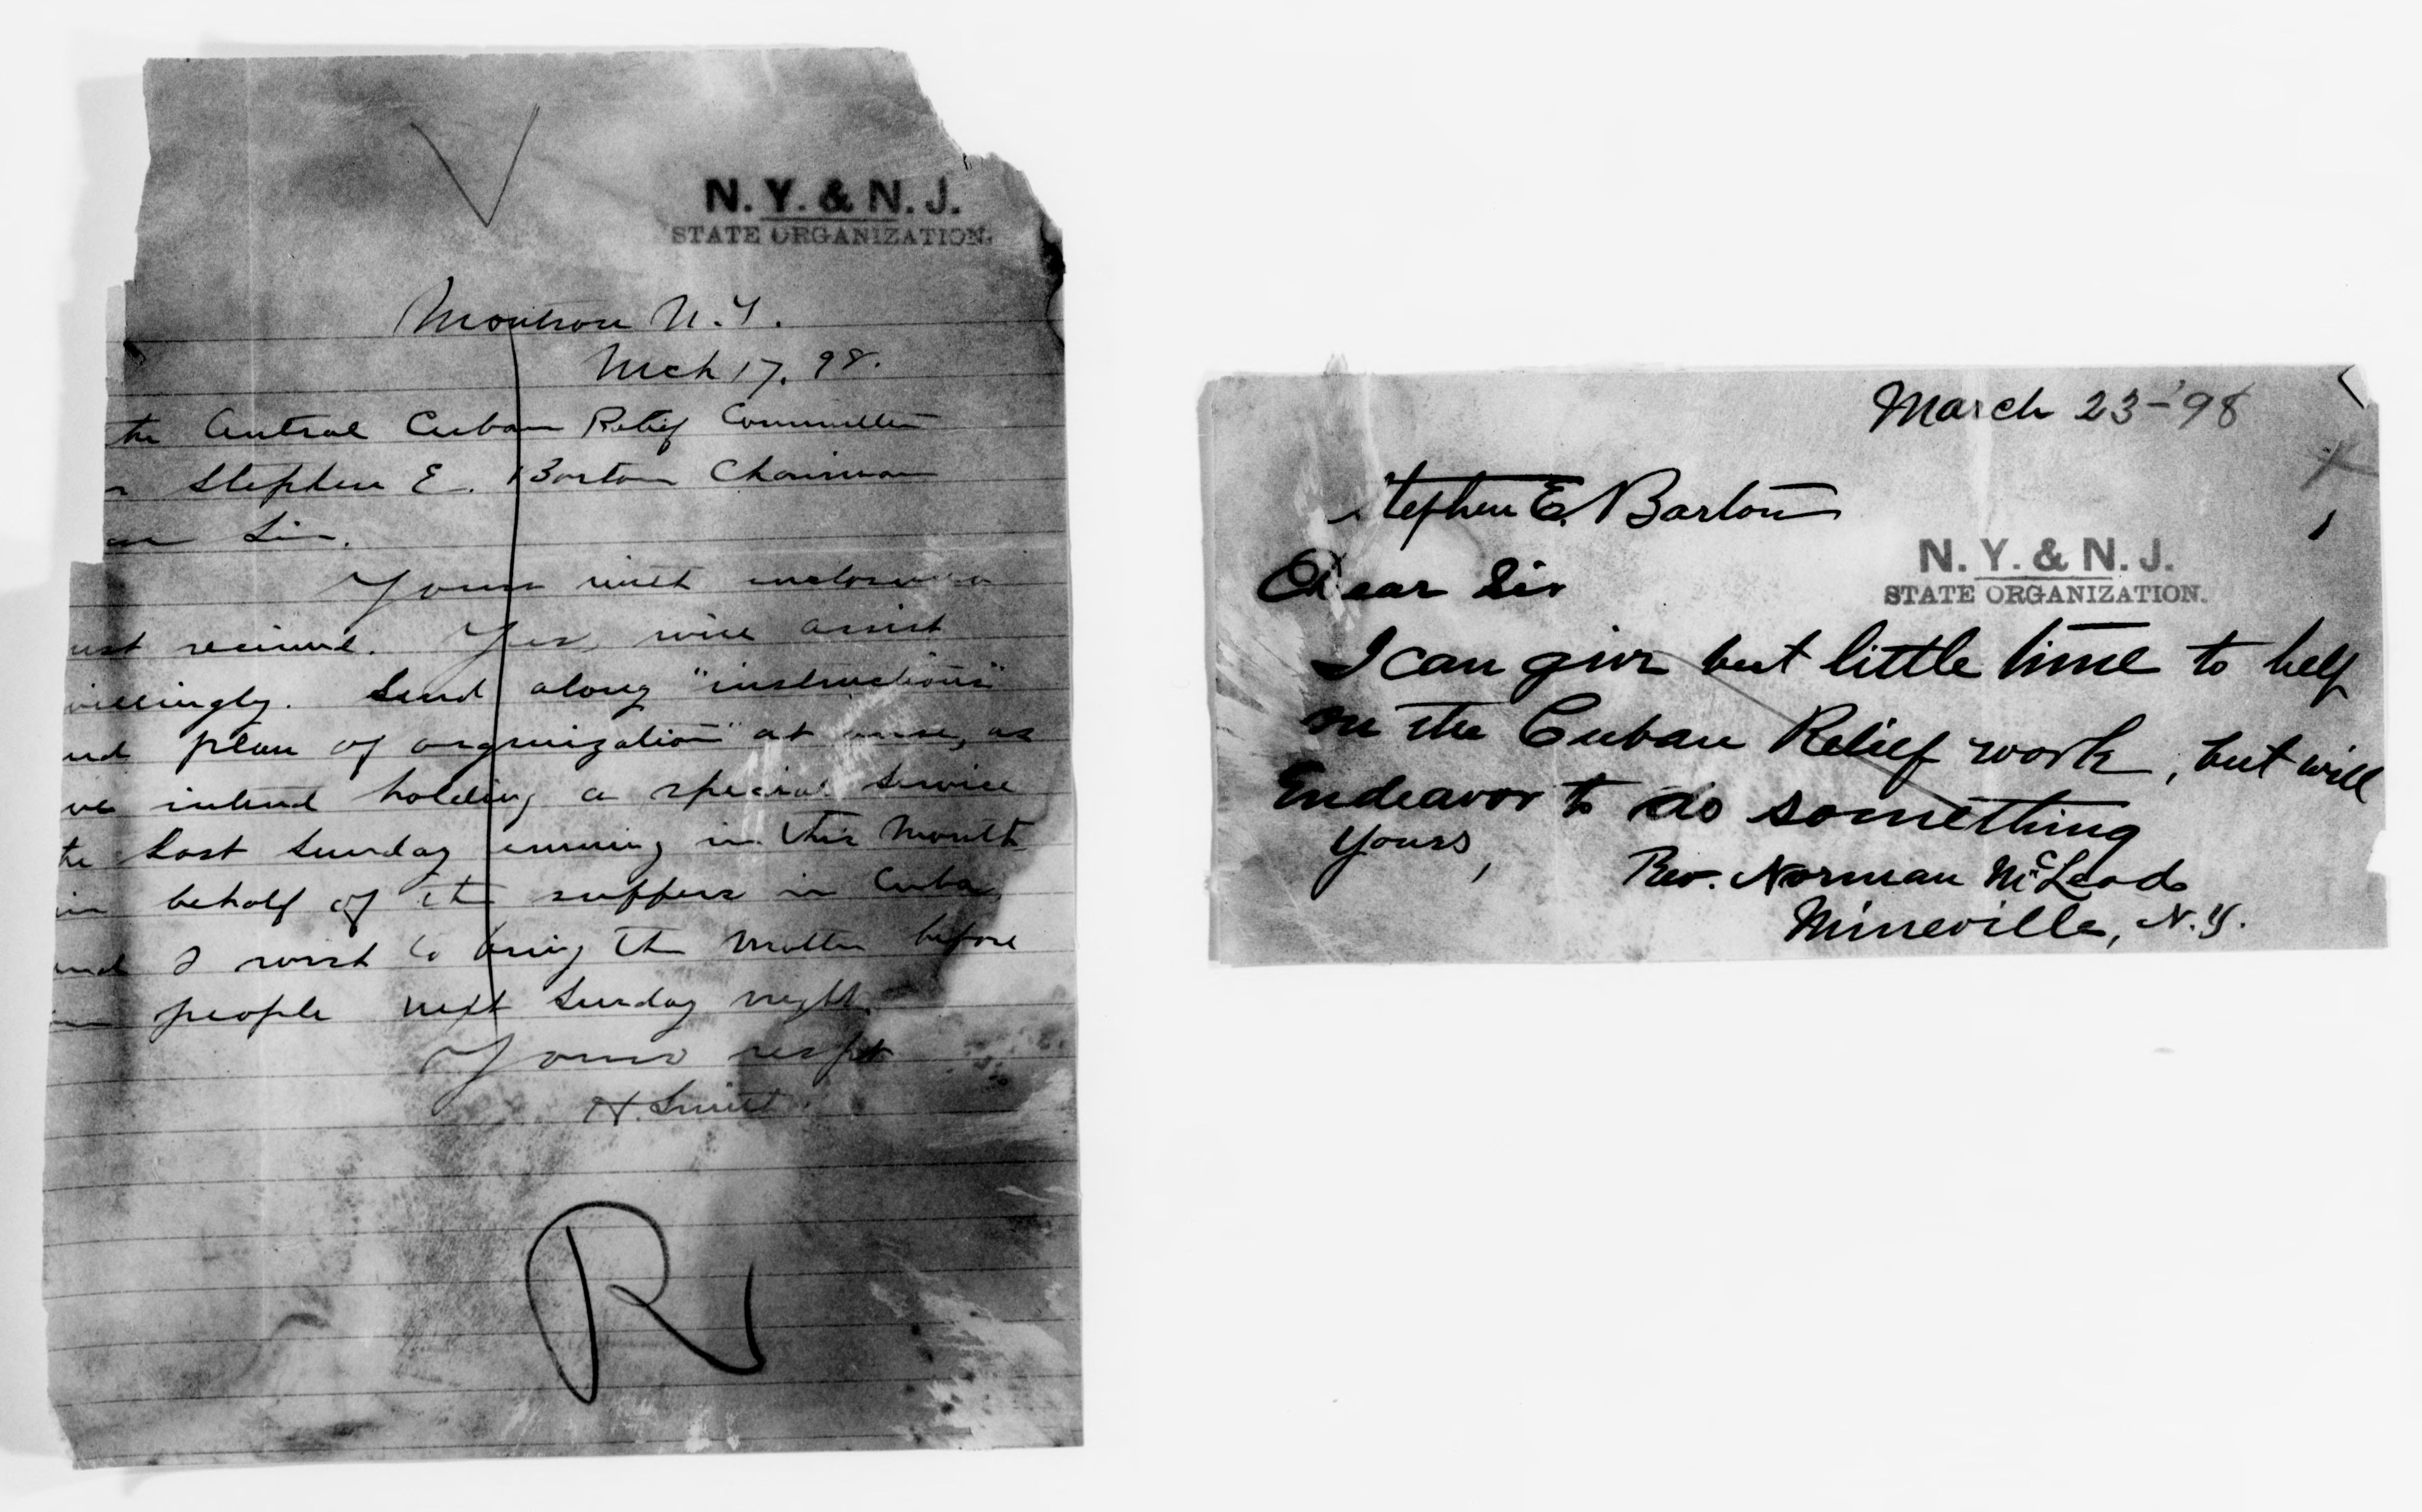 N. Y. & N. J.
STATE ORGANIZATION.
Montrose N.Y.
Mch 17, 98.
the Central Cuban Relief Committee
Stephen E. Barton Chairman
Sir.
Yours with inclosures
ust received. Yes, will assist
willingly. Send along "instructions"
nd plan of organization" at once, as
we intend holding a special service
the last Sunday evening in this Month
in behalf of the suffers in Cuba,
and I wish to bring the matter before
people next Sunday night.
Yours respt
H. Smith
R
March 23-'98
Stephen E. Barton
Dear Sir
N. Y. & N. J.
STATE ORGANIZATION.
I can give but little time to help
on the Cuban Relief work, but will
Endeavor to do something
Yours,
Rev. Norman McLeod
Mineville, N.Y.